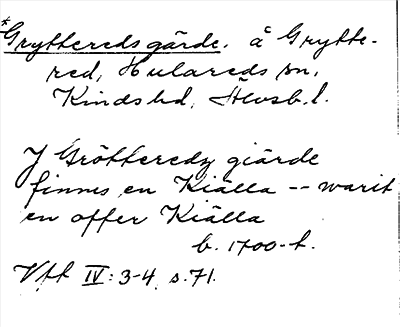 *Gryttereds gärde. å Grytte-
red, Hulareds sn,
Kinds hd, Älvsb. l.
J Grötteredz giärde
finnes en Kiälla -- warit
en offer Kiälla
b. 1700-t.
Vft IV: 3-4 s. 71.